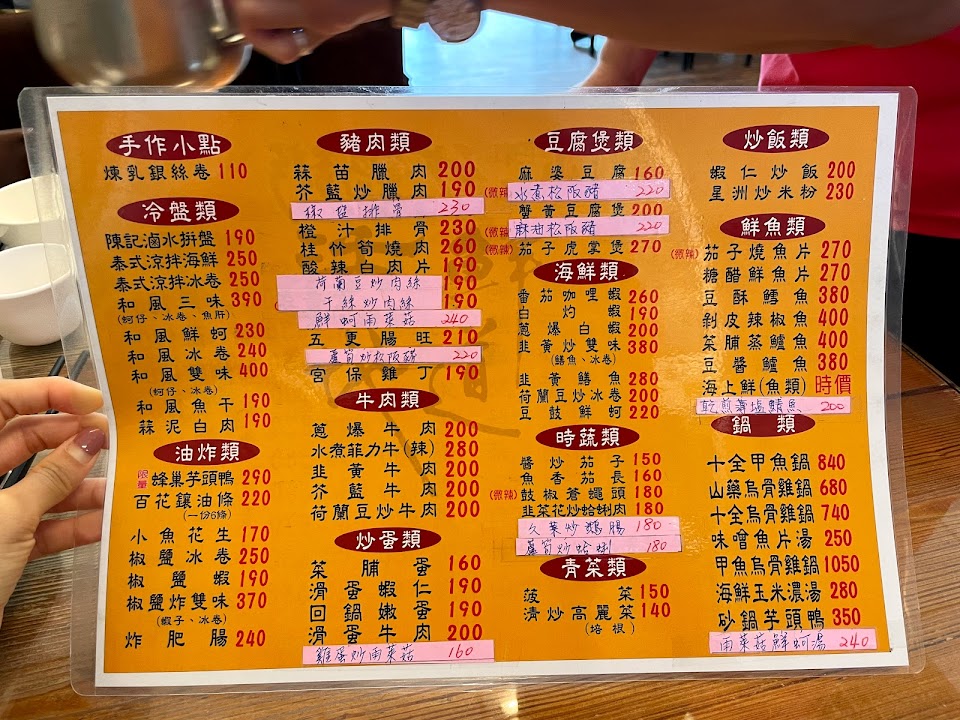 手作小點
煉乳銀絲卷 110
冷盤類
陳記滷水拼盤 190
泰式涼拌海鮮 250
泰式涼拌冰卷 250
和風三味 390
(蚵仔、冰卷、魚肝)
和風鮮蚵 230
和風冰卷 240
和風雙味 400
(蚵仔、冰卷)
和風魚干 190
蒜泥白肉 190
油炸類
限量 蜂巢芋頭鴨 290
百花鑲油條 220
(一份6條)
小魚花生 170
椒鹽冰卷 250
椒鹽蝦 190
椒鹽炸雙味 370
(蝦子、冰卷)
炸肥腸 240
豬肉類
蒜苗臘肉 200
芥藍炒臘肉 190
椒鹽排骨 230
橙汁排骨 230
桂竹筍燒肉 260
酸辣白肉片 190
荷蘭豆炒肉絲 190
干絲炒肉絲 190
鮮蚵雨菜菇 240
五更腸旺 210
蘆筍炒松阪豬 220
宮保雞丁 190
牛肉類
蔥爆牛肉 200
水煮菲力牛(辣) 280
韭黃牛肉 200
芥藍牛肉 200
荷蘭豆炒牛肉 200
炒蛋類
菜脯蛋 160
滑蛋蝦仁 190
回鍋嫩蛋 190
滑蛋牛肉 200
雞蛋炒雨菜菇 160
豆腐煲類
麻婆豆腐 160
(微辣) 水煮松阪豬 220
蟹黃豆腐煲 200
(微辣) 麻油松阪豬 220
(微辣) 茄子虎掌煲 270
海鮮類
番茄咖哩蝦 260
白灼蝦 190
蔥爆白蝦 200
韭黃炒雙味 380
(鱔魚、冰卷)
韭黃鱔魚 280
荷蘭豆炒冰卷 200
豆鼓鮮蚵 220
時蔬類
醬炒茄子 150
魚香茄長 160
(微辣) 鼓椒蒼蠅頭 180
韭菜花炒蛤蜊肉 180
久菜炒鵝腸 180
蘆筍炒蛤蜊 180
青菜類
菠菜 150
清炒高麗菜 140
(培根)
炒飯類
蝦仁炒飯 200
星洲炒米粉 230
鮮魚類
(微辣) 茄子燒魚片 270
糖醋鮮魚片 270
豆酥鱈魚 380
剁皮辣椒魚 400
菜脯蒸鱸魚 400
豆醬鱸魚 380
海上鮮(魚類) 時價
乾煎薄塩鯖魚 200
鍋類
十全甲魚鍋 840
山藥烏骨雞鍋 680
十全烏骨雞鍋 740
味噌魚片湯 250
甲魚烏骨雞鍋 1050
海鮮玉米濃湯 280
砂鍋芋頭鴨 350
雨菜菇鮮蚵湯 240